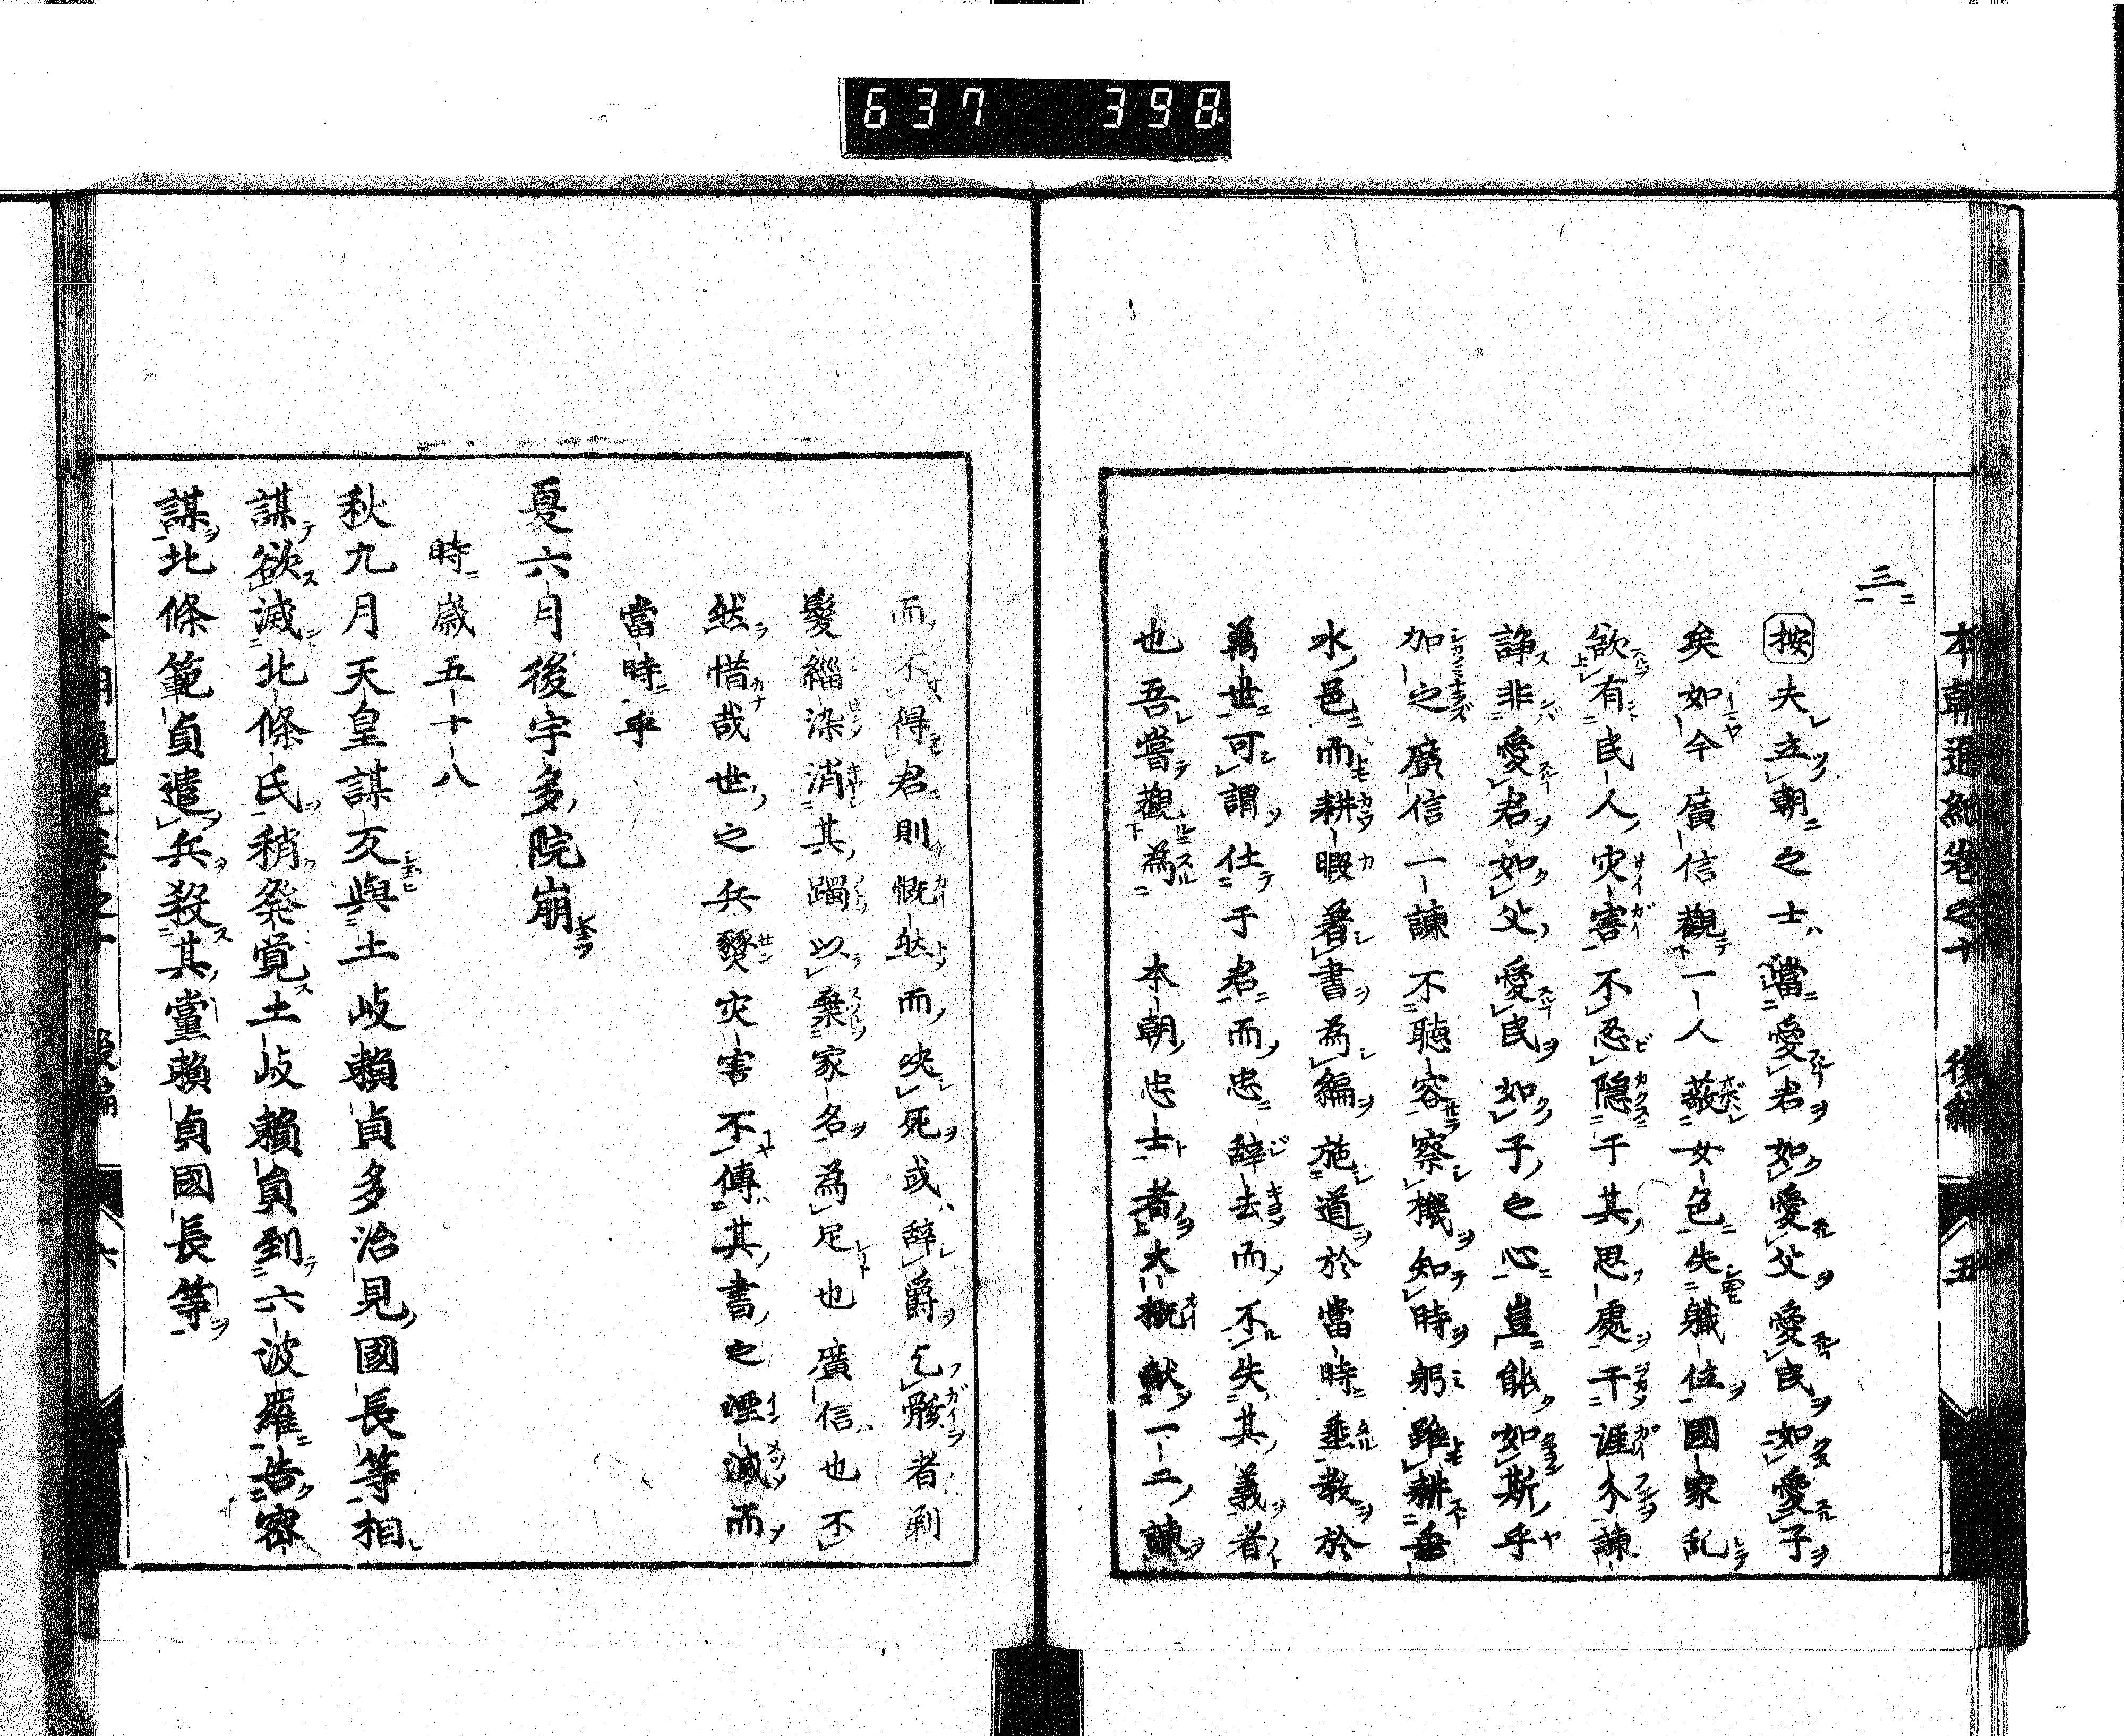 637 398
本朝通紀卷之十 後編 五
三
按夫立朝之士當愛君如愛父愛民如愛子
矣如今廣信觀一人蔽女色失職位國家乱
欲有民人灾害不忍隠于其思處于涯分諫
諍非愛君如父愛民如子之心豈能如斯乎
加之廣信一諫不聴容察機知時躬雖耕垂
水邑而耕暇著書為編施道於當時垂教於
萬世可謂仕于君而忠辞去而不失其義者
也吾嘗觀為 本朝忠士者大概献一二諫
而不得君則慨然而決死或辞爵乞骸者剃
髮緇染消其躅以棄家名為足也廣信也不
然惜哉世之兵燹灾害不傳其書之湮滅而
當時乎
夏六月後宇多院崩
時歳五十八
秋九月天皇謀反與土岐賴貞多治見國長等相
謀欲滅北條氏稍発覚土岐賴貞到六波羅告密
謀北條範貞遣兵殺其黨賴貞國長等
後編 六